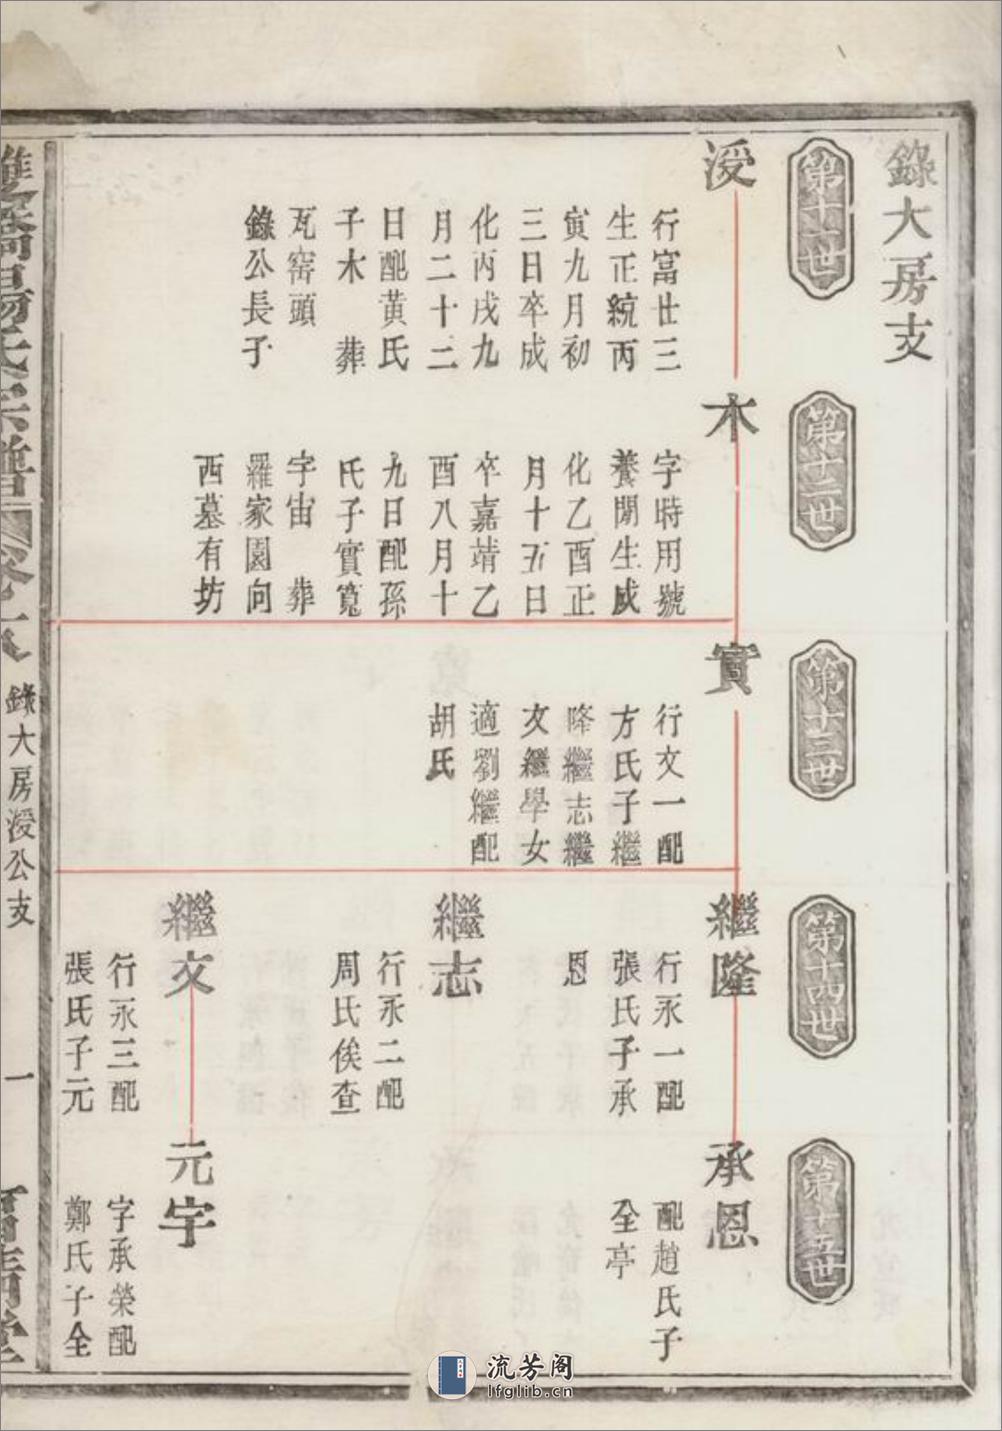 錄大房支
第十一世
第十二世
第十三世
第十四世
第十五世
涭
行富廿三
生正統丙
寅九月初
三日卒成
化丙戌九
月二十二
日配黃氏
子木 葬
瓦窑頭
錄公長子
木
字時用號
養閒生成
化乙酉正
月十五日
卒嘉靖乙
酉八月十
九日配孫
氏子實寬
宇宙 葬
羅家園向
西墓有坊
實
行文一配
方氏子繼
隆繼志繼
文繼學女
適劉繼配
胡氏
繼隆
行永一配
張氏子承
恩
繼志
行永二配
周氏俟查
繼文
行永三配
張氏子元
承恩
配趙氏子
全亭
元宇
字承榮配
鄭氏子全
錄大房涭公支
一
流芳阁
lfglib.cn